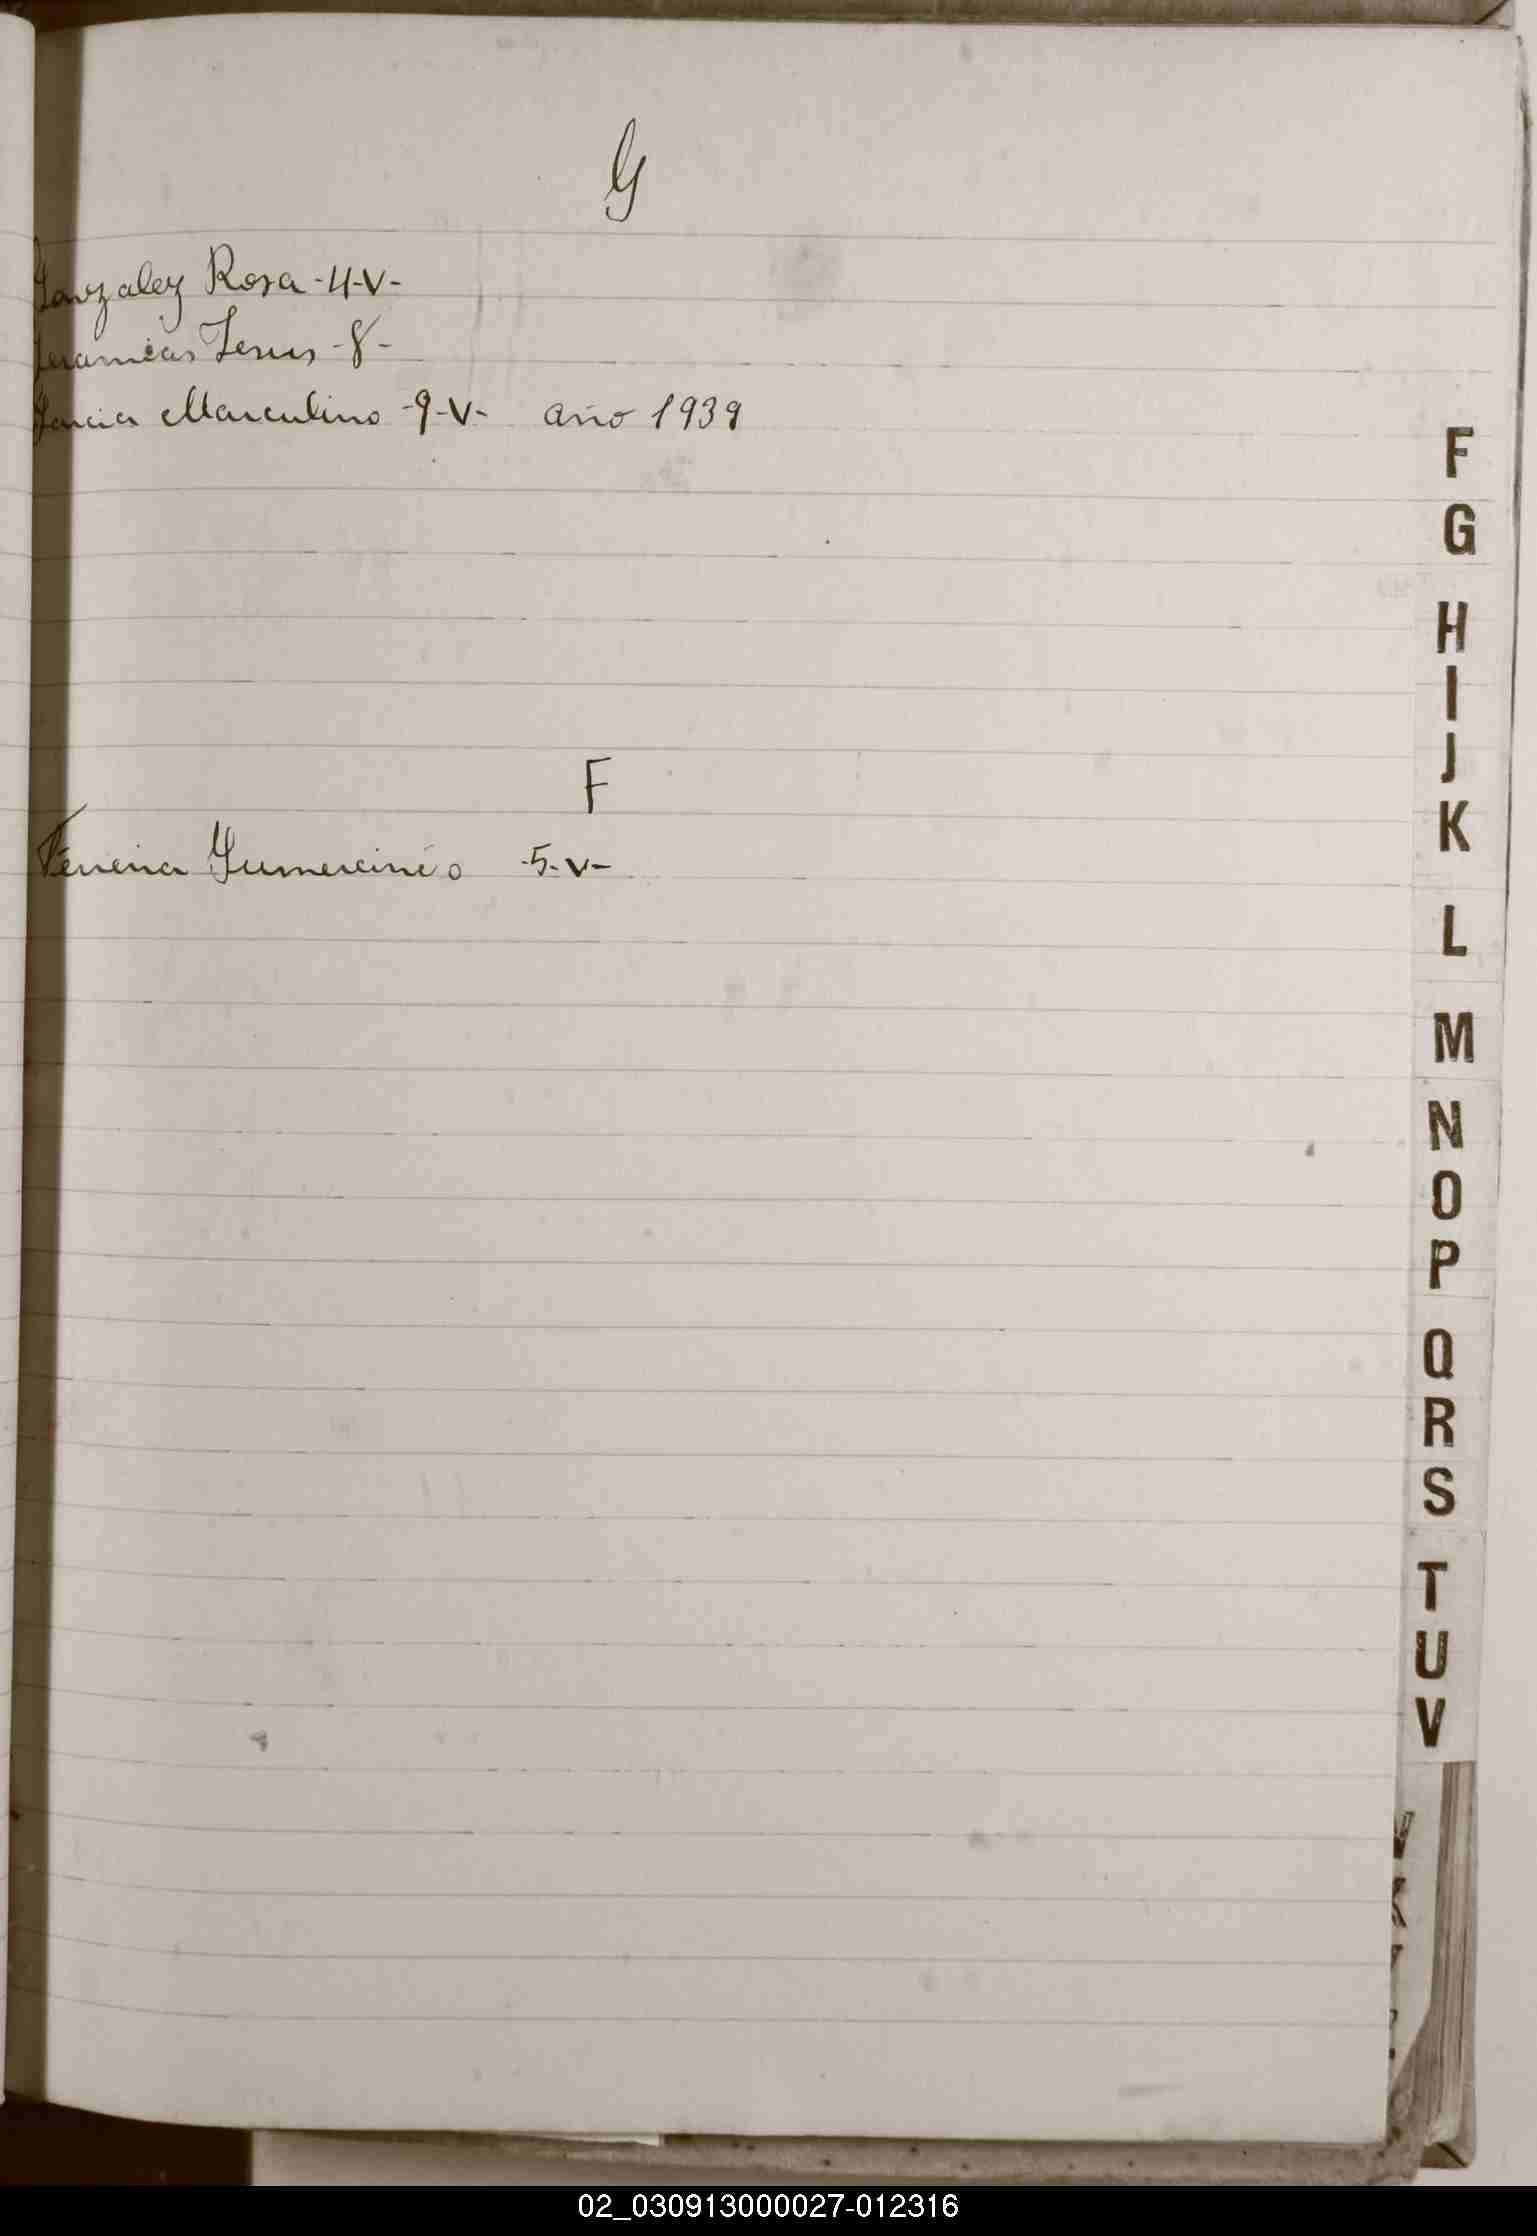 G
Gonzalez Rosa -4-V-
Jesus -8-
Garcia Marculino -9-V- año 1939
F
G
H
I
J
K
L
M
N
O
P
Q
R
S
T
U
V
F
Ferreira Gumercindo -5-V-
02_030913000027-012316